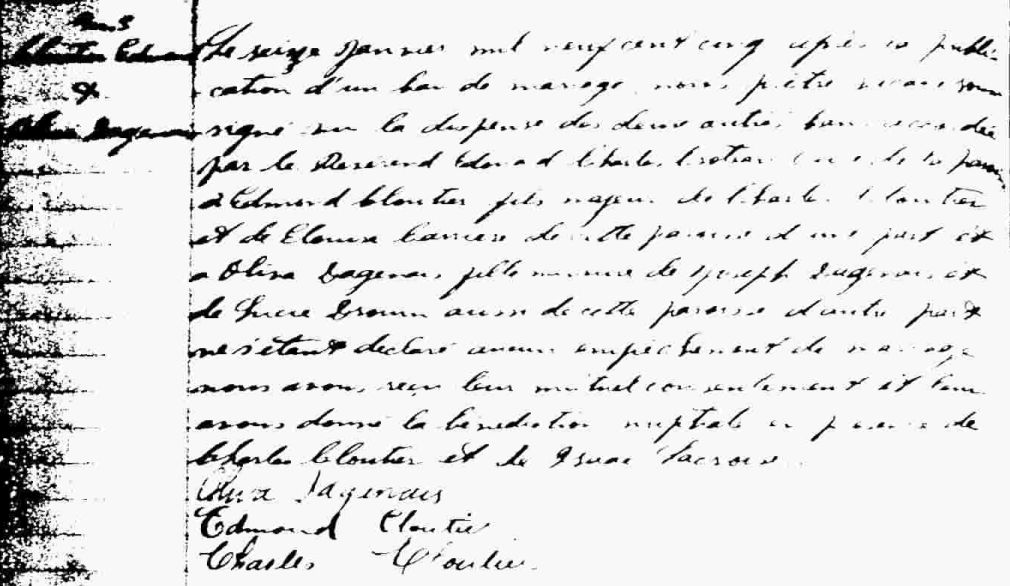 Cloutier Edmond
&
Oliva Dagenais
Le seize Janvier mil neuf cent cinq après la publi-
cation d'un ban de mariage, nous prêtre vicaire sous
signé vu la dispense des deux autres bans accordée
par le Révérend Edouard Charles curé de la paroisse
à Edmond Cloutier fils majeur de Charles Cloutier
et de cette paroisse d'une part et
a Oliva Dagenais fille mineure de Joseph Dagenais et
de Brown aussi de cette paroisse d'autre part
ne s'étant déclaré aucun empêchement de mariage
nous avons reçu leur mutuel consentement et leur
avons donné la bénédiction nuptiale en présence de
Charles Cloutier et de Isaac Lacroix.
Oliva Dagenais
Edmond Cloutier
Charles Cloutier.